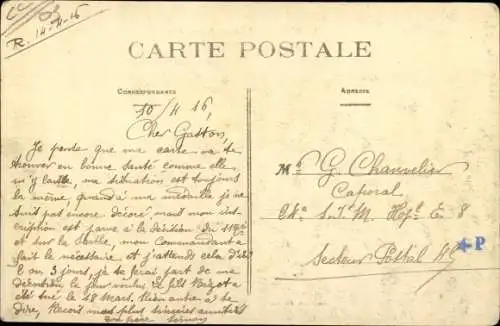 R. 14-4-16
CARTE POSTALE
CORRESPONDANCE
ADRESSE
10/4 16,
Cher Gaston,
Je pense que ma carte va te
trouver en bonne santé comme elle
m'y laisse, ma situation est toujours
la même, quand à ma médaille je ne
suis pas encore décoré, mais mon ins-
cription est parue à la décision du
et sur la mon Commandant a
fait le nécessaire et j'attends cela d'ici
2 ou 3 jours, je te ferai part de ma
décoration le jour voulu. Le fils Bizot a
été tué le 28 Mars. Rien autre à te
dire, Reçois mes plus sincères amitiés
ton frère
Mr G. Chanvelier
Caporal
S.T.M. Hop. E. 8
Secteur Postal
+P